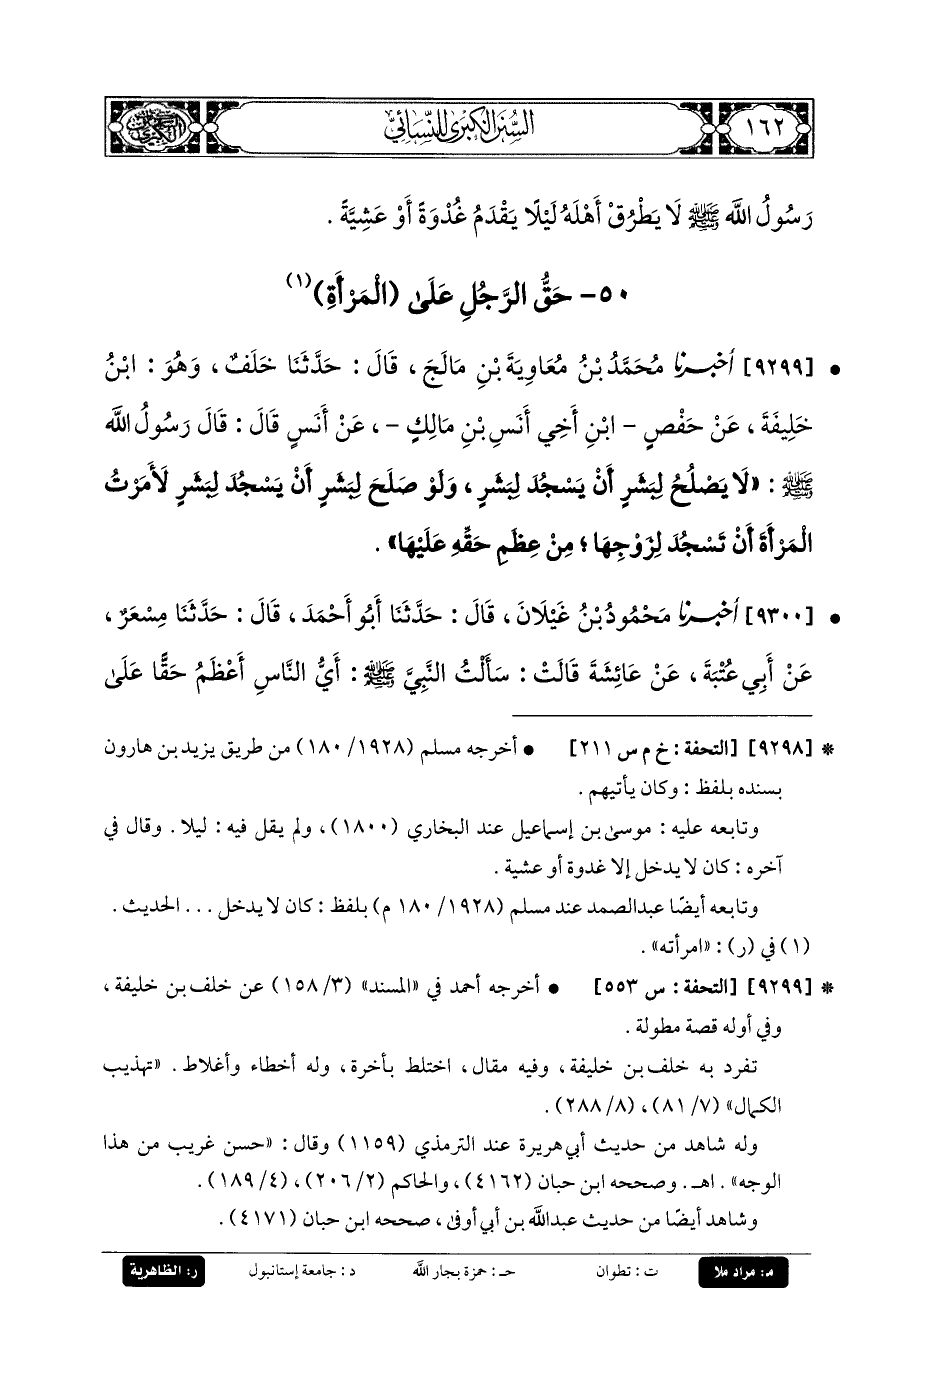 ١٦٢
السنن الكبرى للنسائي
رَسُولُ اللَّه ﷺ لَا يَطْرُقْ أَهْلَهُ لَيْلًا يَقْدَمُ غُدْوَةً أَوْ عَشِيَّةً .
٥٠- حَقُّ الرَّجُلِ عَلَى (الْمَرْأَةِ)(١)
• [٩٢٩٩] أَخْبَرَنَا مُحَمَّدُ بْنُ مُعَاوِيَةَ بْنِ مَالَجَ ، قَالَ : حَدَّثَنَا خَلَفٌ ، وَهُوَ : ابْنُ
خَلِيفَةَ ، عَنْ حَفْصٍ - ابْنِ أَخِي أَنَسِ بْنِ مَالِكٍ - ، عَنْ أَنَسٍ قَالَ : قَالَ رَسُولُ اللَّه
ﷺ : «لَا يَصْلُحُ لِبَشَرٍ أَنْ يَسْجُدَ لِبَشَرٍ ، وَلَوْ صَلَحَ لِبَشَرٍ أَنْ يَسْجُدَ لِبَشَرٍ لَأَمَرْتُ
الْمَرْأَةَ أَنْ تَسْجُدَ لِزَوْجِهَا ؛ مِنْ عِظَمِ حَقِّهِ عَلَيْهَا» .
• [٩٣٠٠] أَخْبَرَنَا مَحْمُودُ بْنُ غَيْلَانَ ، قَالَ : حَدَّثَنَا أَبُو أَحْمَدَ ، قَالَ : حَدَّثَنَا مِسْعَرٌ ،
عَنْ أَبِي عُتْبَةَ ، عَنْ عَائِشَةَ قَالَتْ : سَأَلْتُ النَّبِيَّ ﷺ : أَيُّ النَّاسِ أَعْظَمُ حَقًّا عَلَى
* [٩٢٩٨] [التحفة : خ م س ٢١١] • أخرجه مسلم (١٩٢٨/ ١٨٠) من طريق يزيد بن هارون
بسنده بلفظ : وكان يأتيهم .
وتابعه عليه : موسى بن إسماعيل عند البخاري (١٨٠٠) ، ولم يقل فيه : ليلا . وقال في
آخره : كان لا يدخل إلا غدوة أو عشية .
وتابعه أيضًا عبدالصمد عند مسلم (١٩٢٨/ ١٨٠ م) بلفظ : كان لا يدخل ... الحديث .
(١) في (ر) : «امرأته» .
* [٩٢٩٩] [التحفة : س ٥٥٣] • أخرجه أحمد في «المسند» (٣/ ١٥٨) عن خلف بن خليفة ،
وفي أوله قصة مطولة .
تفرد به خلف بن خليفة ، وفيه مقال ، اختلط بأخرة ، وله أخطاء وأغلاط . «تهذيب
الكمال» (٧/ ٨١) ، (٨/ ٢٨٨) .
وله شاهد من حديث أبي هريرة عند الترمذي (١١٥٩) وقال : «حسن غريب من هذا
الوجه» . اهـ . وصححه ابن حبان (٤١٦٢) ، والحاكم (٢/ ٢٠٦) ، (٤/ ١٨٩) .
وشاهد أيضًا من حديث عبداللَّه بن أبي أوفى ، صححه ابن حبان (٤١٧١) .
م: مراد ملا ت : تطوان حـ : حمزة بجار اللَّه د : جامعة إستانبول ر: الظاهرية